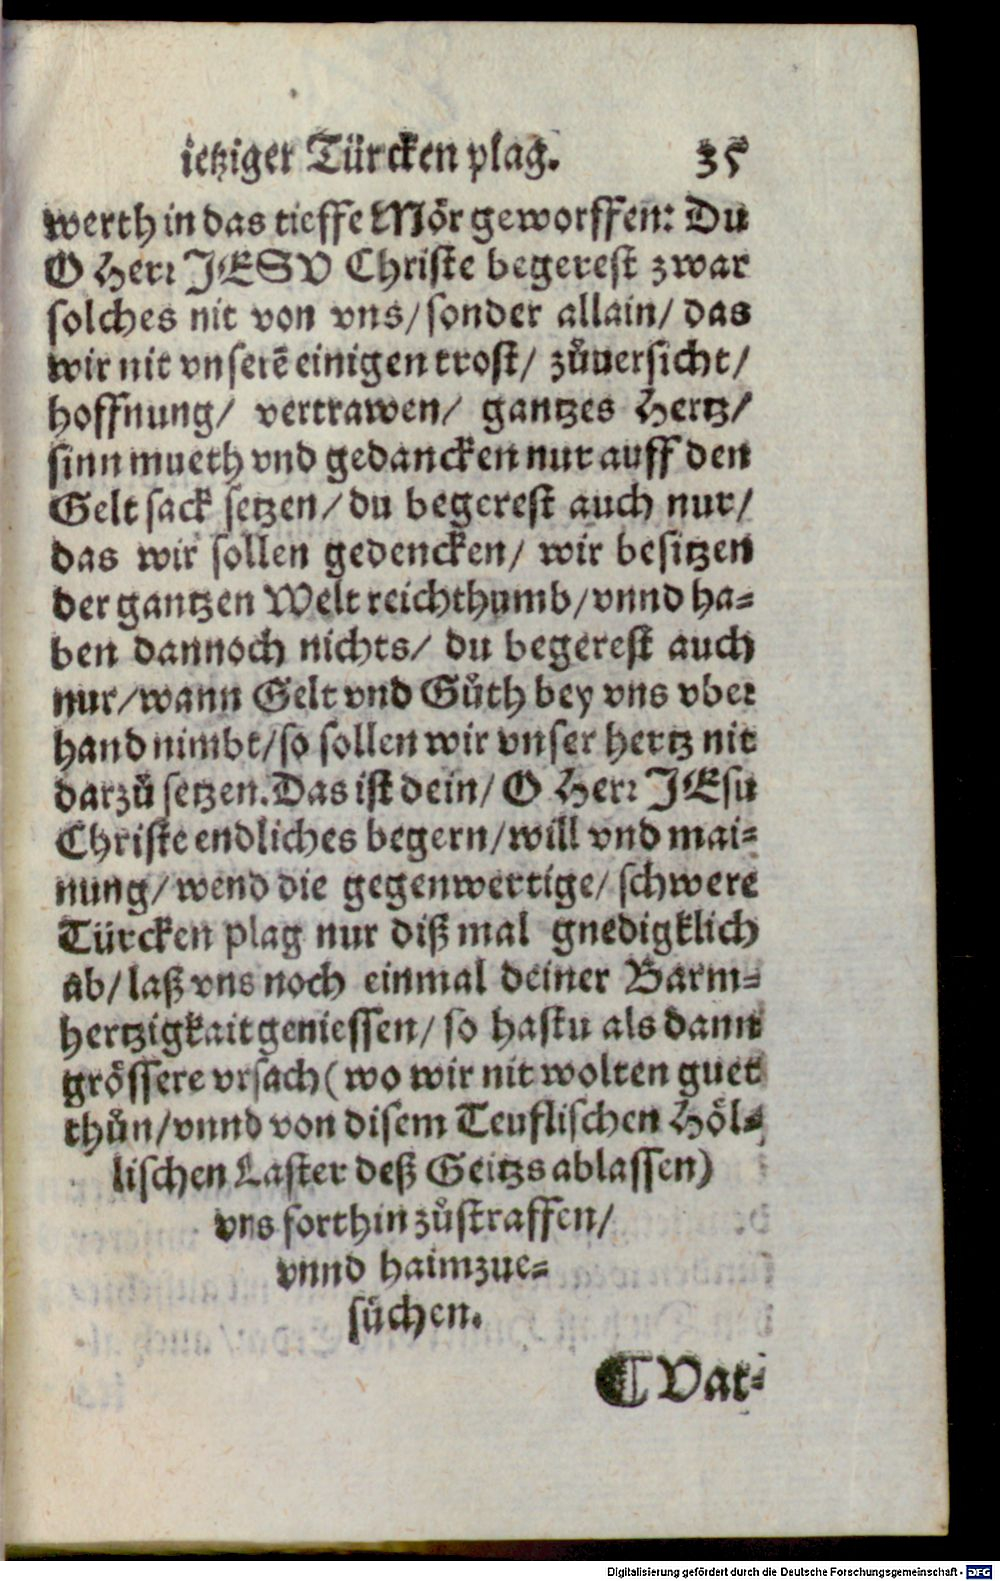 ietziger Türcken plag. 35
werth in das tieffe Mör geworffen: Du
O Herr JESV Christe begerest zwar
solches nit von vns/ sonder allain/ das
wir nit vnserē einigen trost/ zůuersicht/
hoffnung/ vertrawen/ gantzes Hertz/
sinn mueth vnd gedancken nur auff den
Gelt sack setzen/ du begerest auch nur/
das wir sollen gedencken/ wir besitzen
der gantzen Welt reichthumb/ vnnd ha⸗
ben dannoch nichts/ du begerest auch
nur/ wann Gelt vnd Gůth bey vns vber
hand nimbt/ so sollen wir vnser hertz nit
darzů setzen. Das ist dein/ O Herr JEsu
Christe endliches begern/ will vnd mai⸗
nung/ wend die gegenwertige/ schwere
Türcken plag nur diß mal gnedigklich
ab/ laß vns noch einmal deiner Barm⸗
hertzigkait geniessen/ so hastu als dann
grössere vrsach (wo wir nit wolten guet
thůn/ vnnd von disem Teuflischen Höl⸗
lischen Laster deß Geitzs ablassen)
vns forthin zůstraffen/
vnnd haimzue⸗
sůchen.
❡ Vat⸗
Digitalisierung gefördert durch die Deutsche Forschungsgemeinschaft - DFG